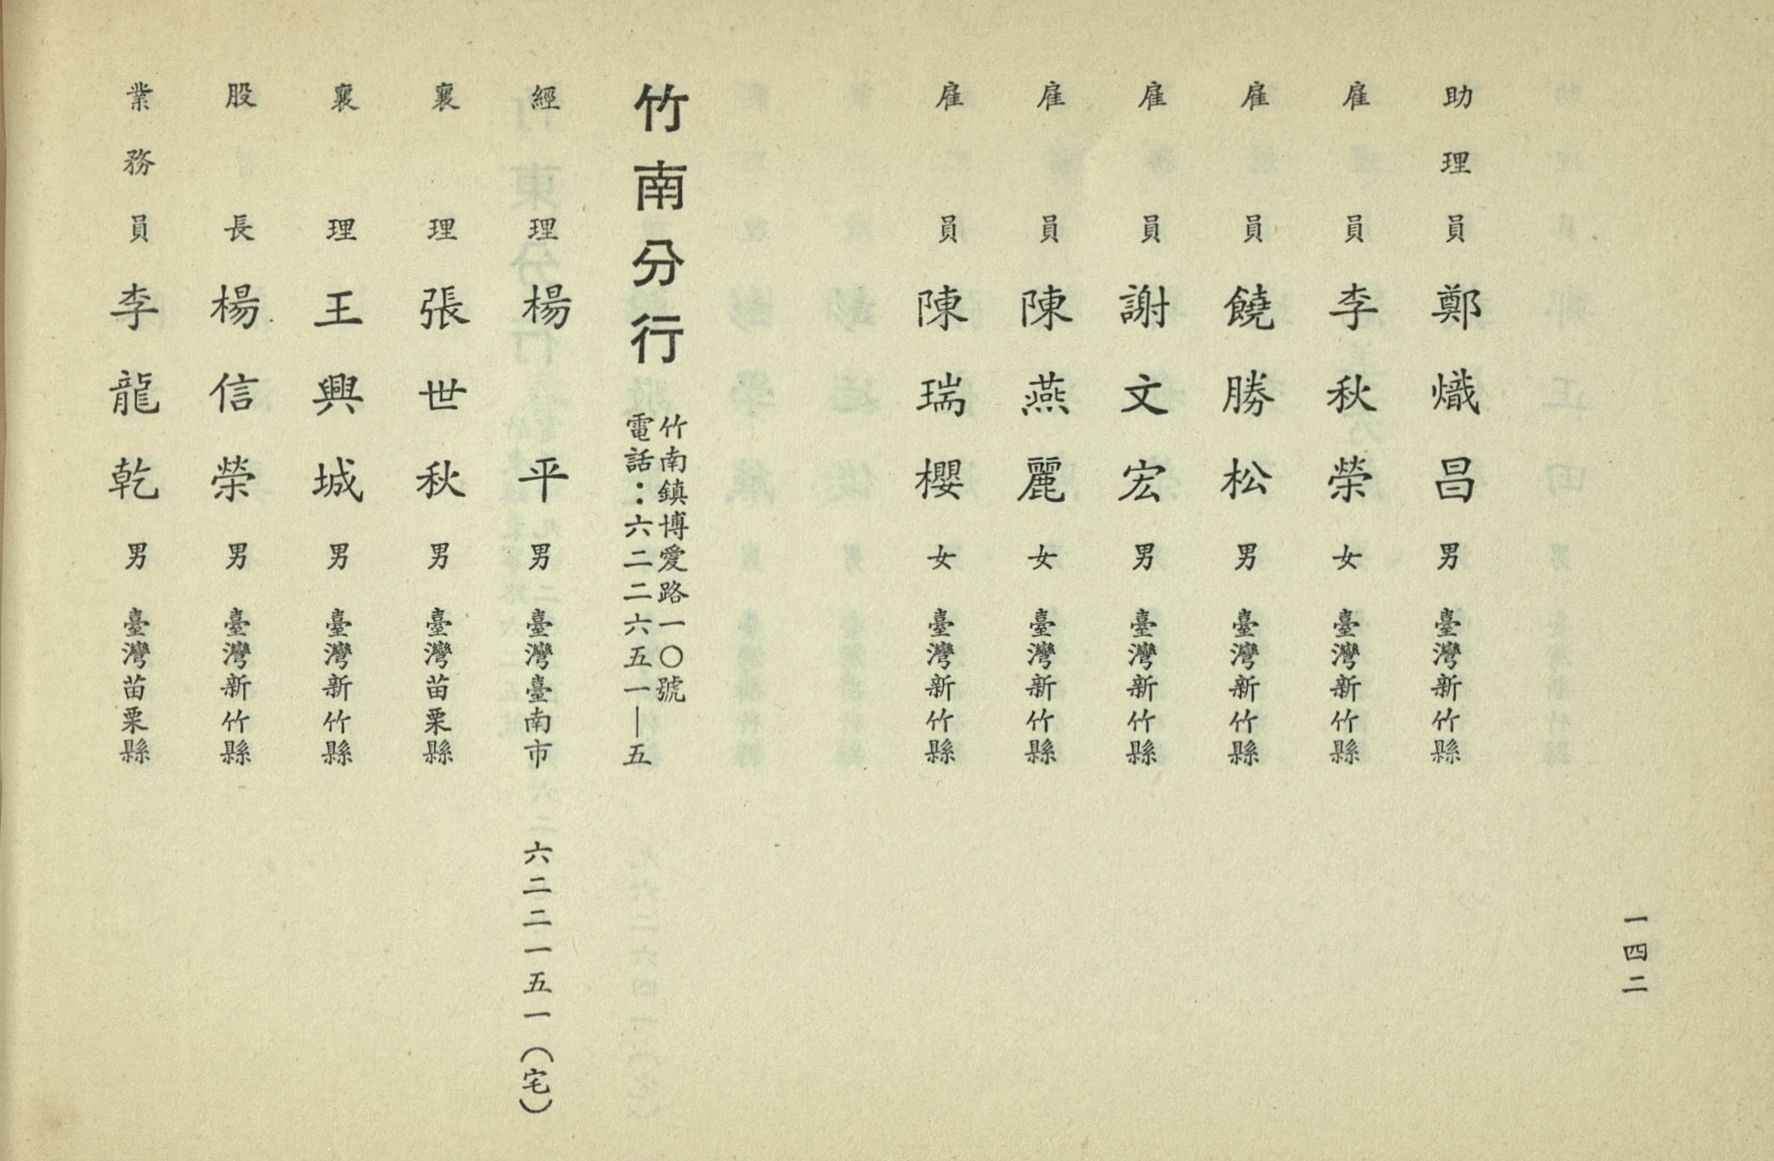 一四二
助理員 鄭熾昌 男 臺灣新竹縣
雇員 李秋榮 女 臺灣新竹縣
雇員 饒勝松 男 臺灣新竹縣
雇員 謝文宏 男 臺灣新竹縣
雇員 陳燕麗 女 臺灣新竹縣
雇員 陳瑞櫻 女 臺灣新竹縣
竹南分行
竹南鎮博愛路一〇號
電話：六二二六五一—五
經理 楊平 男 臺灣臺南市 六二二一五一（宅）
襄理 張世秋 男 臺灣苗栗縣
襄理 王興城 男 臺灣新竹縣
股長 楊信榮 男 臺灣新竹縣
業務員 李龍乾 男 臺灣苗栗縣